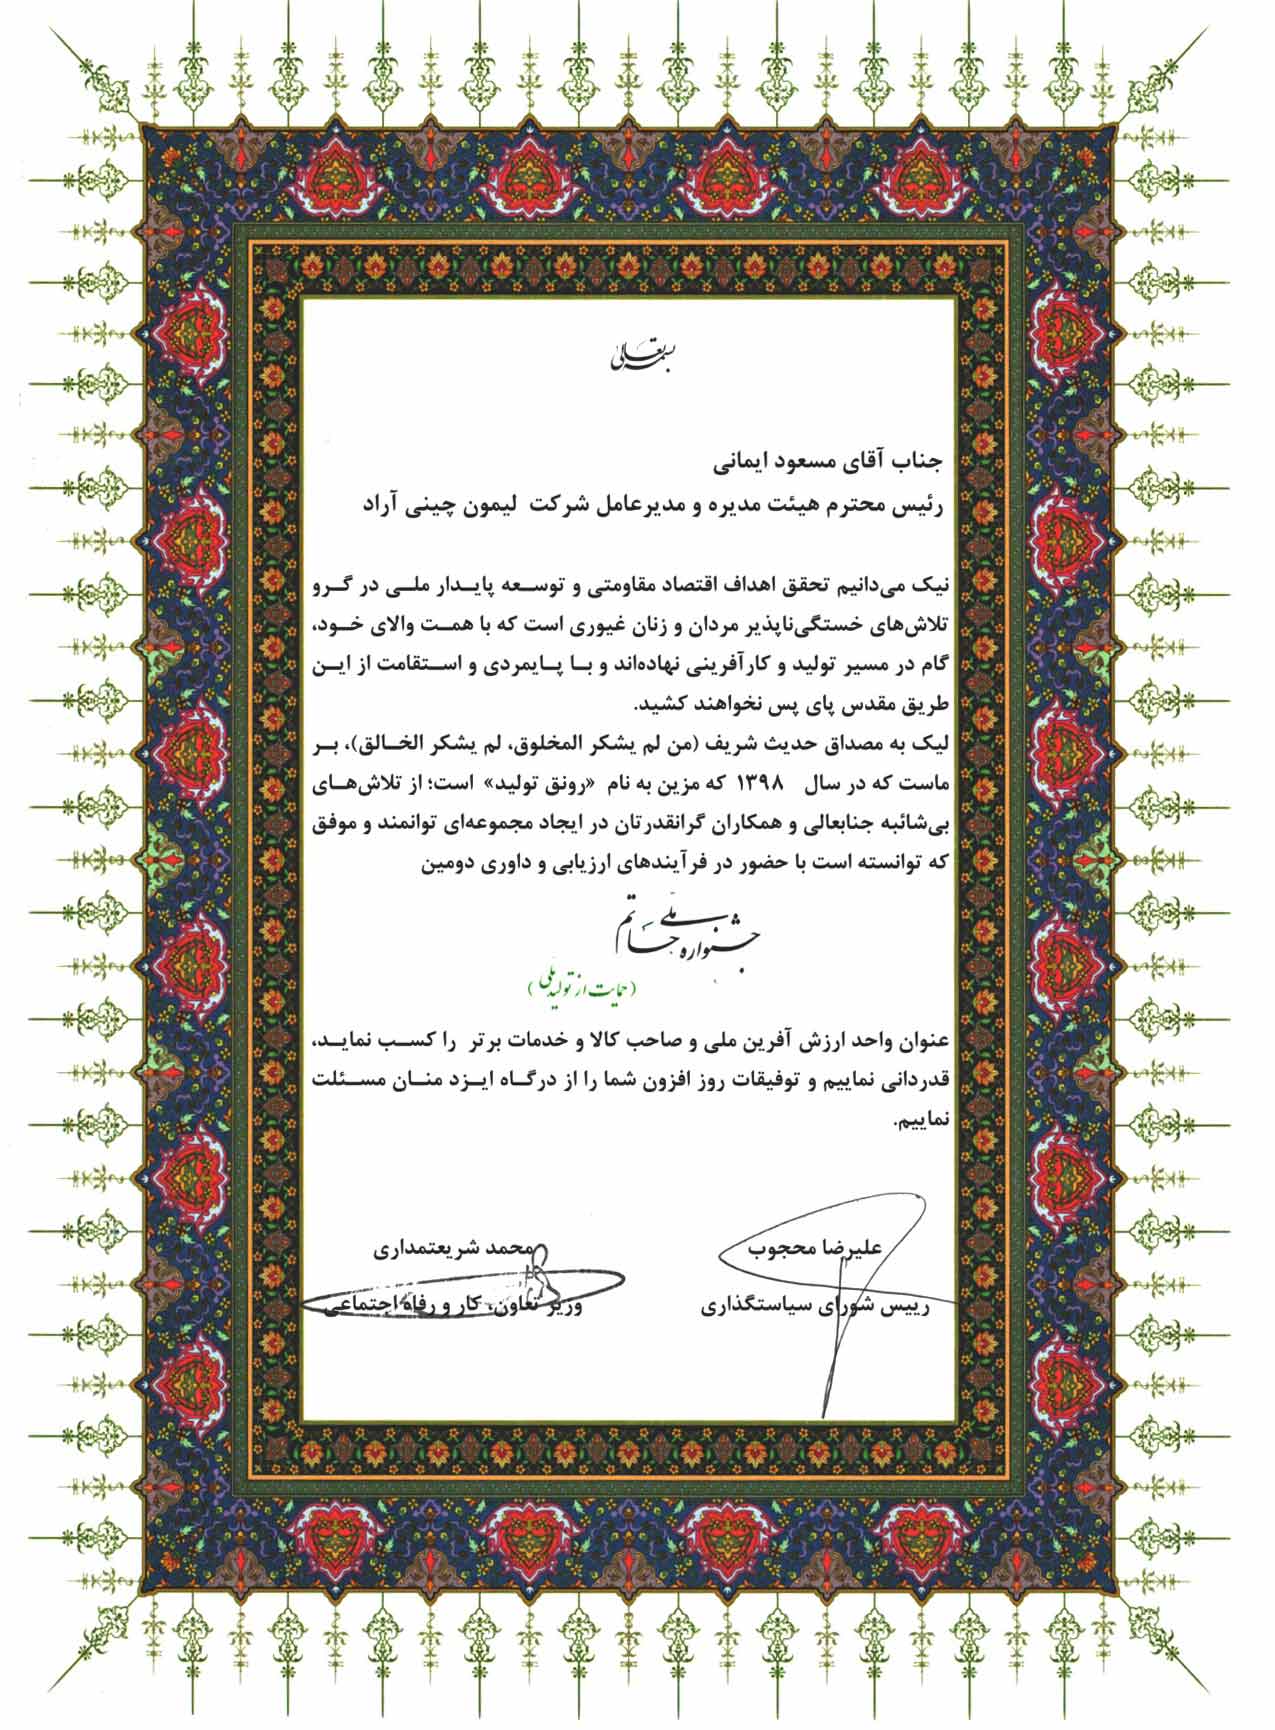 بسمه تعالی
جناب آقای مسعود ایمانی
رئیس محترم هیئت مدیره و مدیرعامل شرکت لیمون چینی آراد
نیک می‌دانیم تحقق اهداف اقتصاد مقاومتی و توسعه پایدار ملی در گرو
تلاش‌های خستگی‌ناپذیر مردان و زنان غیوری است که با همت والای خود،
گام در مسیر تولید و کارآفرینی نهاده‌اند و با پایمردی و استقامت از این
طریق مقدس پای پس نخواهند کشید.
لیک به مصداق حدیث شریف (من لم یشکر المخلوق، لم یشکر الخالق)، بر
ماست که در سال ۱۳۹۸ که مزین به نام «رونق تولید» است؛ از تلاش‌های
بی‌شائبه جنابعالی و همکاران گرانقدرتان در ایجاد مجموعه‌ای توانمند و موفق
که توانسته است با حضور در فرآیندهای ارزیابی و داوری دومین
جشنواره ملی حاتم
(حمایت از تولید ملی)
عنوان واحد ارزش آفرین ملی و صاحب کالا و خدمات برتر را کسب نماید،
قدردانی نماییم و توفیقات روز افزون شما را از درگاه ایزد منان مسئلت
نماییم.
علیرضا محجوب
رییس شورای سیاستگذاری
محمد شریعتمداری
وزیر تعاون، کار و رفاه اجتماعی